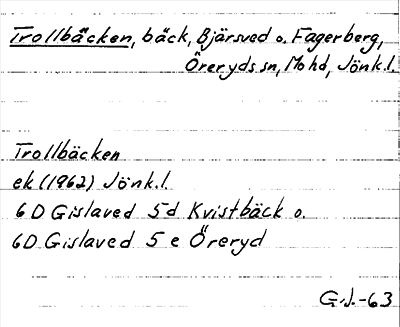 Trollbäcken, bäck, Bjärsved o. Fagerberg,
Öreryds sn, Mo hd, Jönk.l.
Trollbäcken
ek (1962) Jönk.l.
6D Gislaved 5d Kvistbäck o.
6D Gislaved 5e Öreryd
G.J.-63